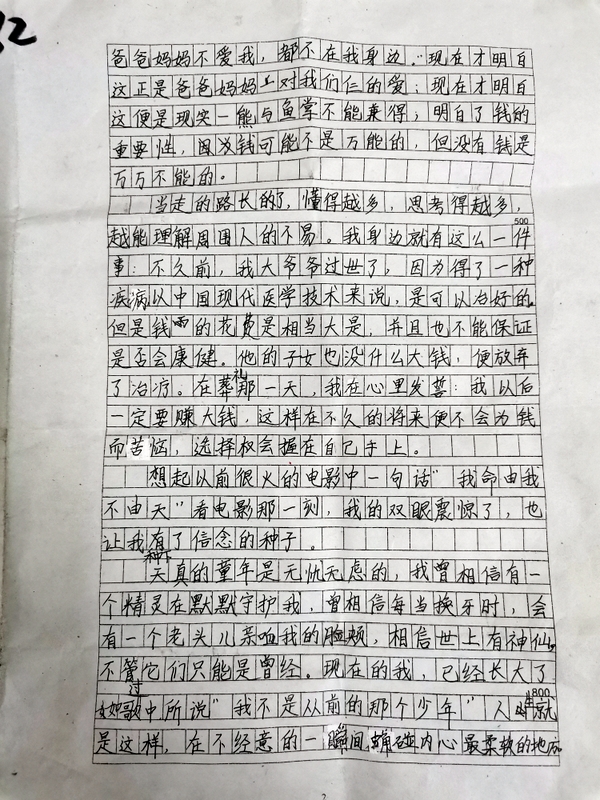 12
爸爸妈妈不爱我，都不在我身边。"现在才明白
这正是爸爸妈妈对我们仨的爱；现在才明白
这便是现实一熊与鱼掌不能兼得；明白了钱的
重要性，因没钱可能不是万能的，但没有钱是
万万不能的。
当走的路长的了，懂得越多，思考得越多，
500
越能理解周围人的不易。我身边就有这么一件
事：不久前，我大爷爷过世了，因为得了一种
疾病以中国现代医学技术来说，是可以治好的，
但是钱的花费是相当大是，并且也不能保证
是否会康健。他的子女也没什么大钱，便放弃
了治疗。在葬礼那一天，我在心里发誓：我以后
一定要赚大钱，这样在不久的将来便不会为钱
而苦恼，选择权会握在自己手上。
想起以前很火的电影中一句话"我命由我
不由天"看电影那一刻，我的双眼震惊了，也
让我种下了信念的种子。
天真的童年是无忧无虑的，我曾相信有一
个精灵在默默守护我，曾相信每当换牙时，会
有一个老头儿亲吻我的脸颊，相信世上有神仙，
不管它们只能是曾经。现在的我，已经长大了
过
800
如歌中所说"我不是从前的那个少年"人生就
是这样，在不经意的一瞬间，触碰内心最柔软的地